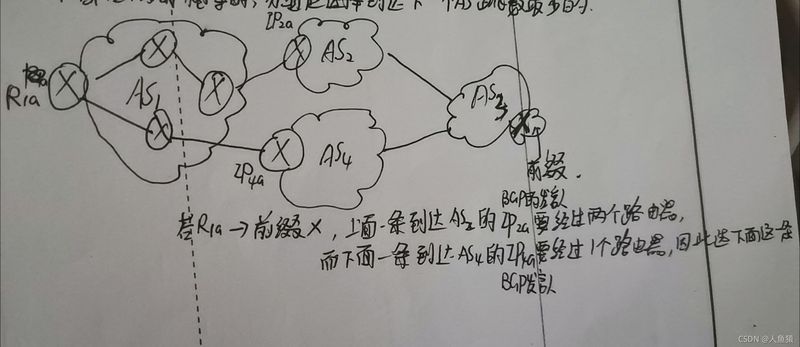 IP2a
AS2
R1a
AS1
AS3
IP4a
AS4
前缀.
BGP的发言人
若R1a→前缀X,上面一条到达AS2的IP2a要经过两个路由器,
而下面一条到达AS4的IP4a要经过1个路由器,因此选下面这一条
BGP发言人
CSDN @人鱼猿